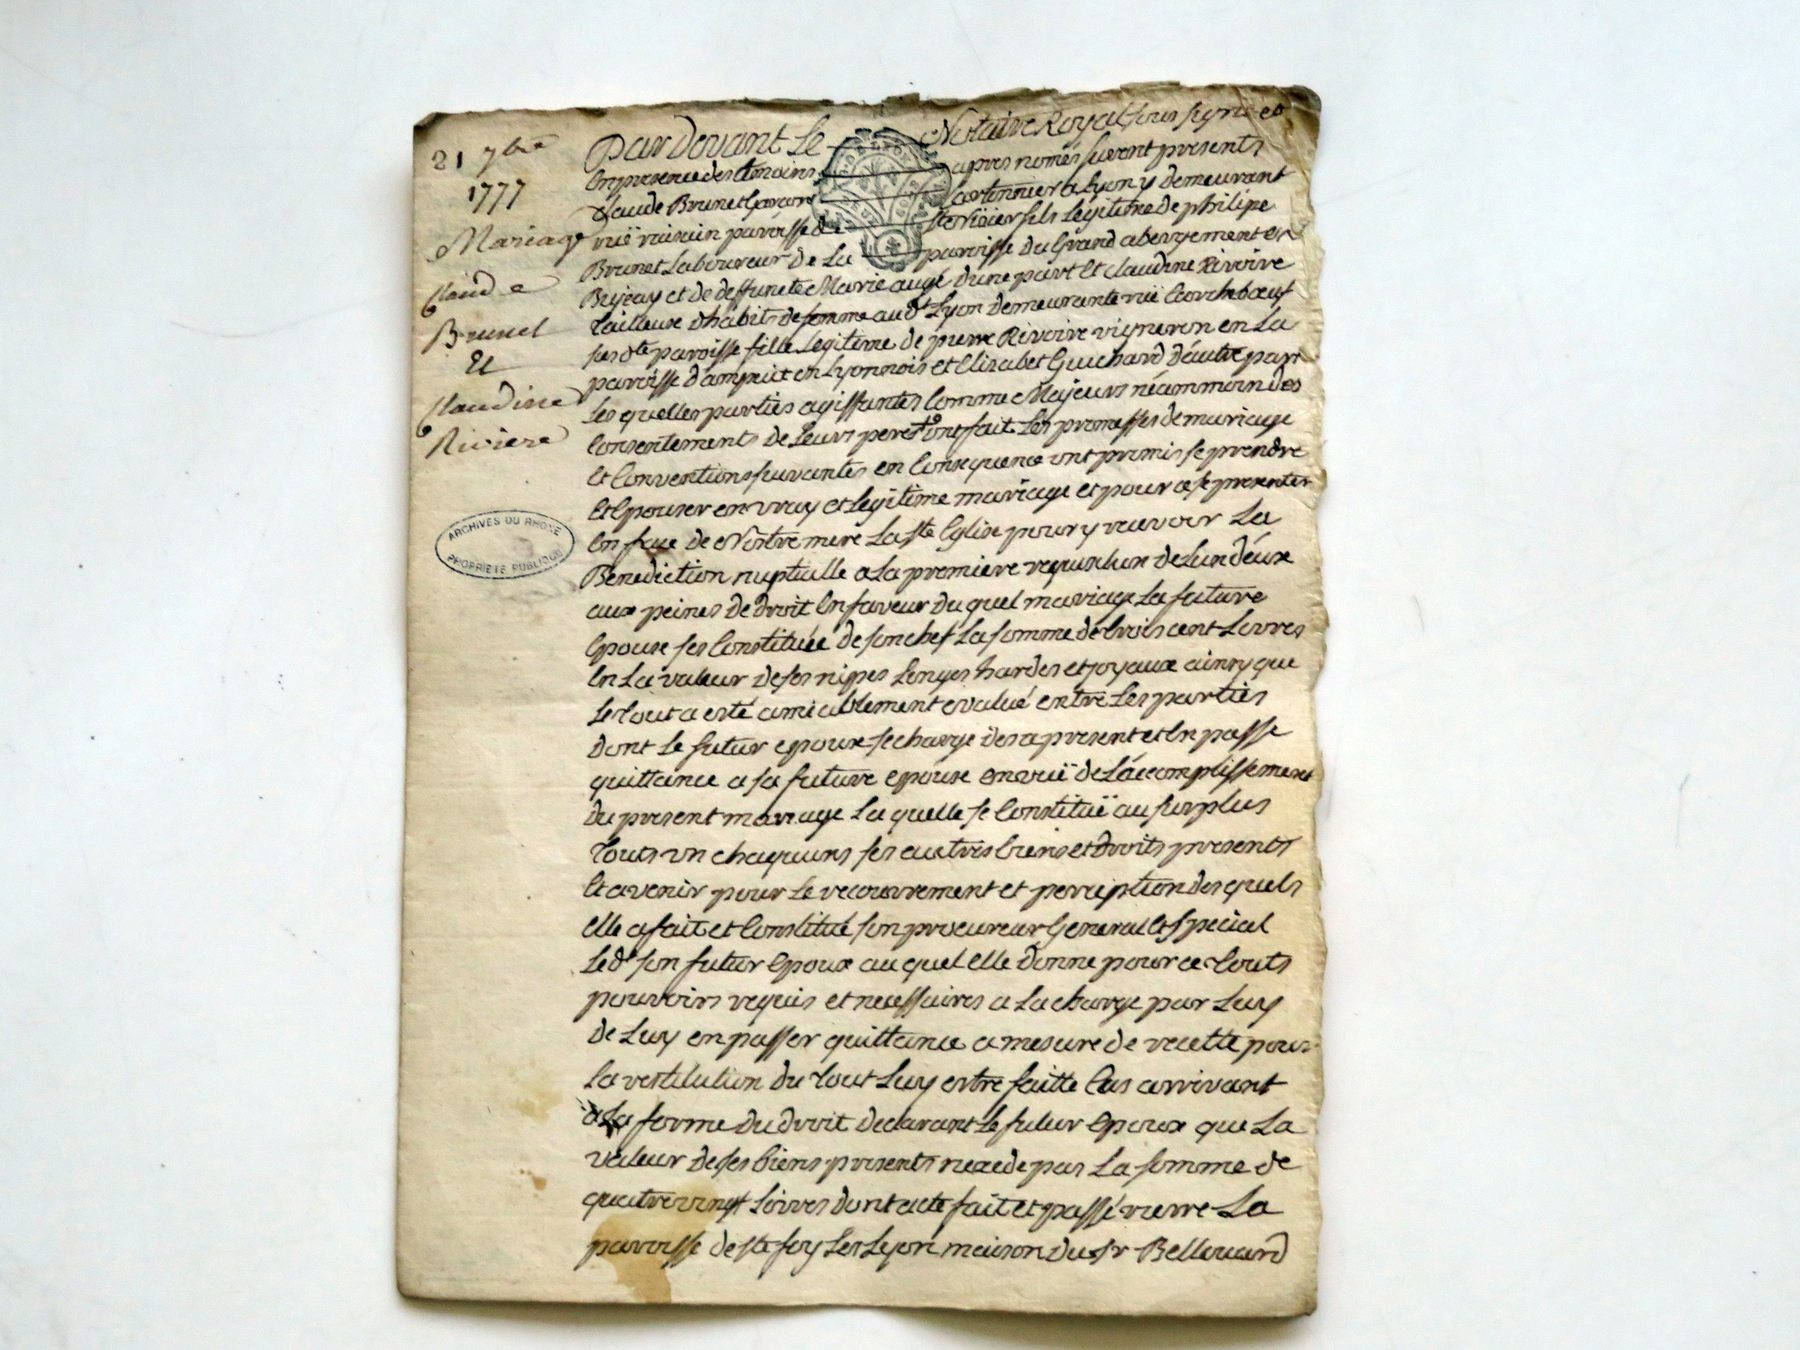 21 7bre
1777
Mariage
Claude
Brunet
Et
Claudine
Riviere
ARCHIVES DU RHONE
PROPRIETE PUBLIQUE
Par Devant Le Notaire Royal sous signé et
En presence des temoins apres només furent presents
Claude Brunet Garçon Cartonnier a Lyon y demeurant
ruë raisin paroisse de St Nizier fils Legitime de philipe
Brunet Laboureur De La paroisse du Grand abergement en
Bujeay et de deffunete Marie augé d'une part Et claudine Rivoire
tailleuse d'habits de femme aud Lyon demeurante ruë Ecorcheboeuf
susdte paroisse fille Legitime de pierre Rivoire vigneron en La
paroisse d'ampuit en Lyonnois et Elizabet Guichard d'autre part
Les quelles parties agissantes Comme Majeurs néammoin des
Consentements de Leurs peres ont fait Les promesses de mariage
Et Conventions suivantes en Consequence ont promis se prendre
Et Epouser en vray et Legitime mariage et pour ce se presenter
En face de Nostre mere La Ste Eglise pour y recevoir La
Benediction nuptialle a La premiere requisition de Lun d'éux
aux peines de droit En faveur du quel mariage La future
Epouse ses Constituée de son chef La somme de trois cent Livres
En La valeur de ses nippes Linges hardes et joyaux ainsy que
Le tout a esté amiablement evalué entre Les parties
dont Le futur epoux se charge des a present et En passe
quittance a sa future epouse en vuë de L'acomplissement
du present mariage La quelle se Constituë au surplus
touts un chaquuns ses autres biens et droits presents
Et avenir pour Le recouvrement et perception des quels
elle a fait et Constitué son procureur General Et Special
Led son futur Epoux au quel elle donne pour ce touts
pouvoirs requis et necessaires a La charge par Luy
de Luy en passer quittance a mesure de recette pour
La restitution du tout Luy estre faitte Cas arrivant
a La forme du droit declarant Le futur Epoux que La
valeur de ses biens presents nexcede pas La somme de
quatre vingt Livres dont acte fait et passé rierre La
paroisse de ste foy Les Lyon maison du Sr Bellouard